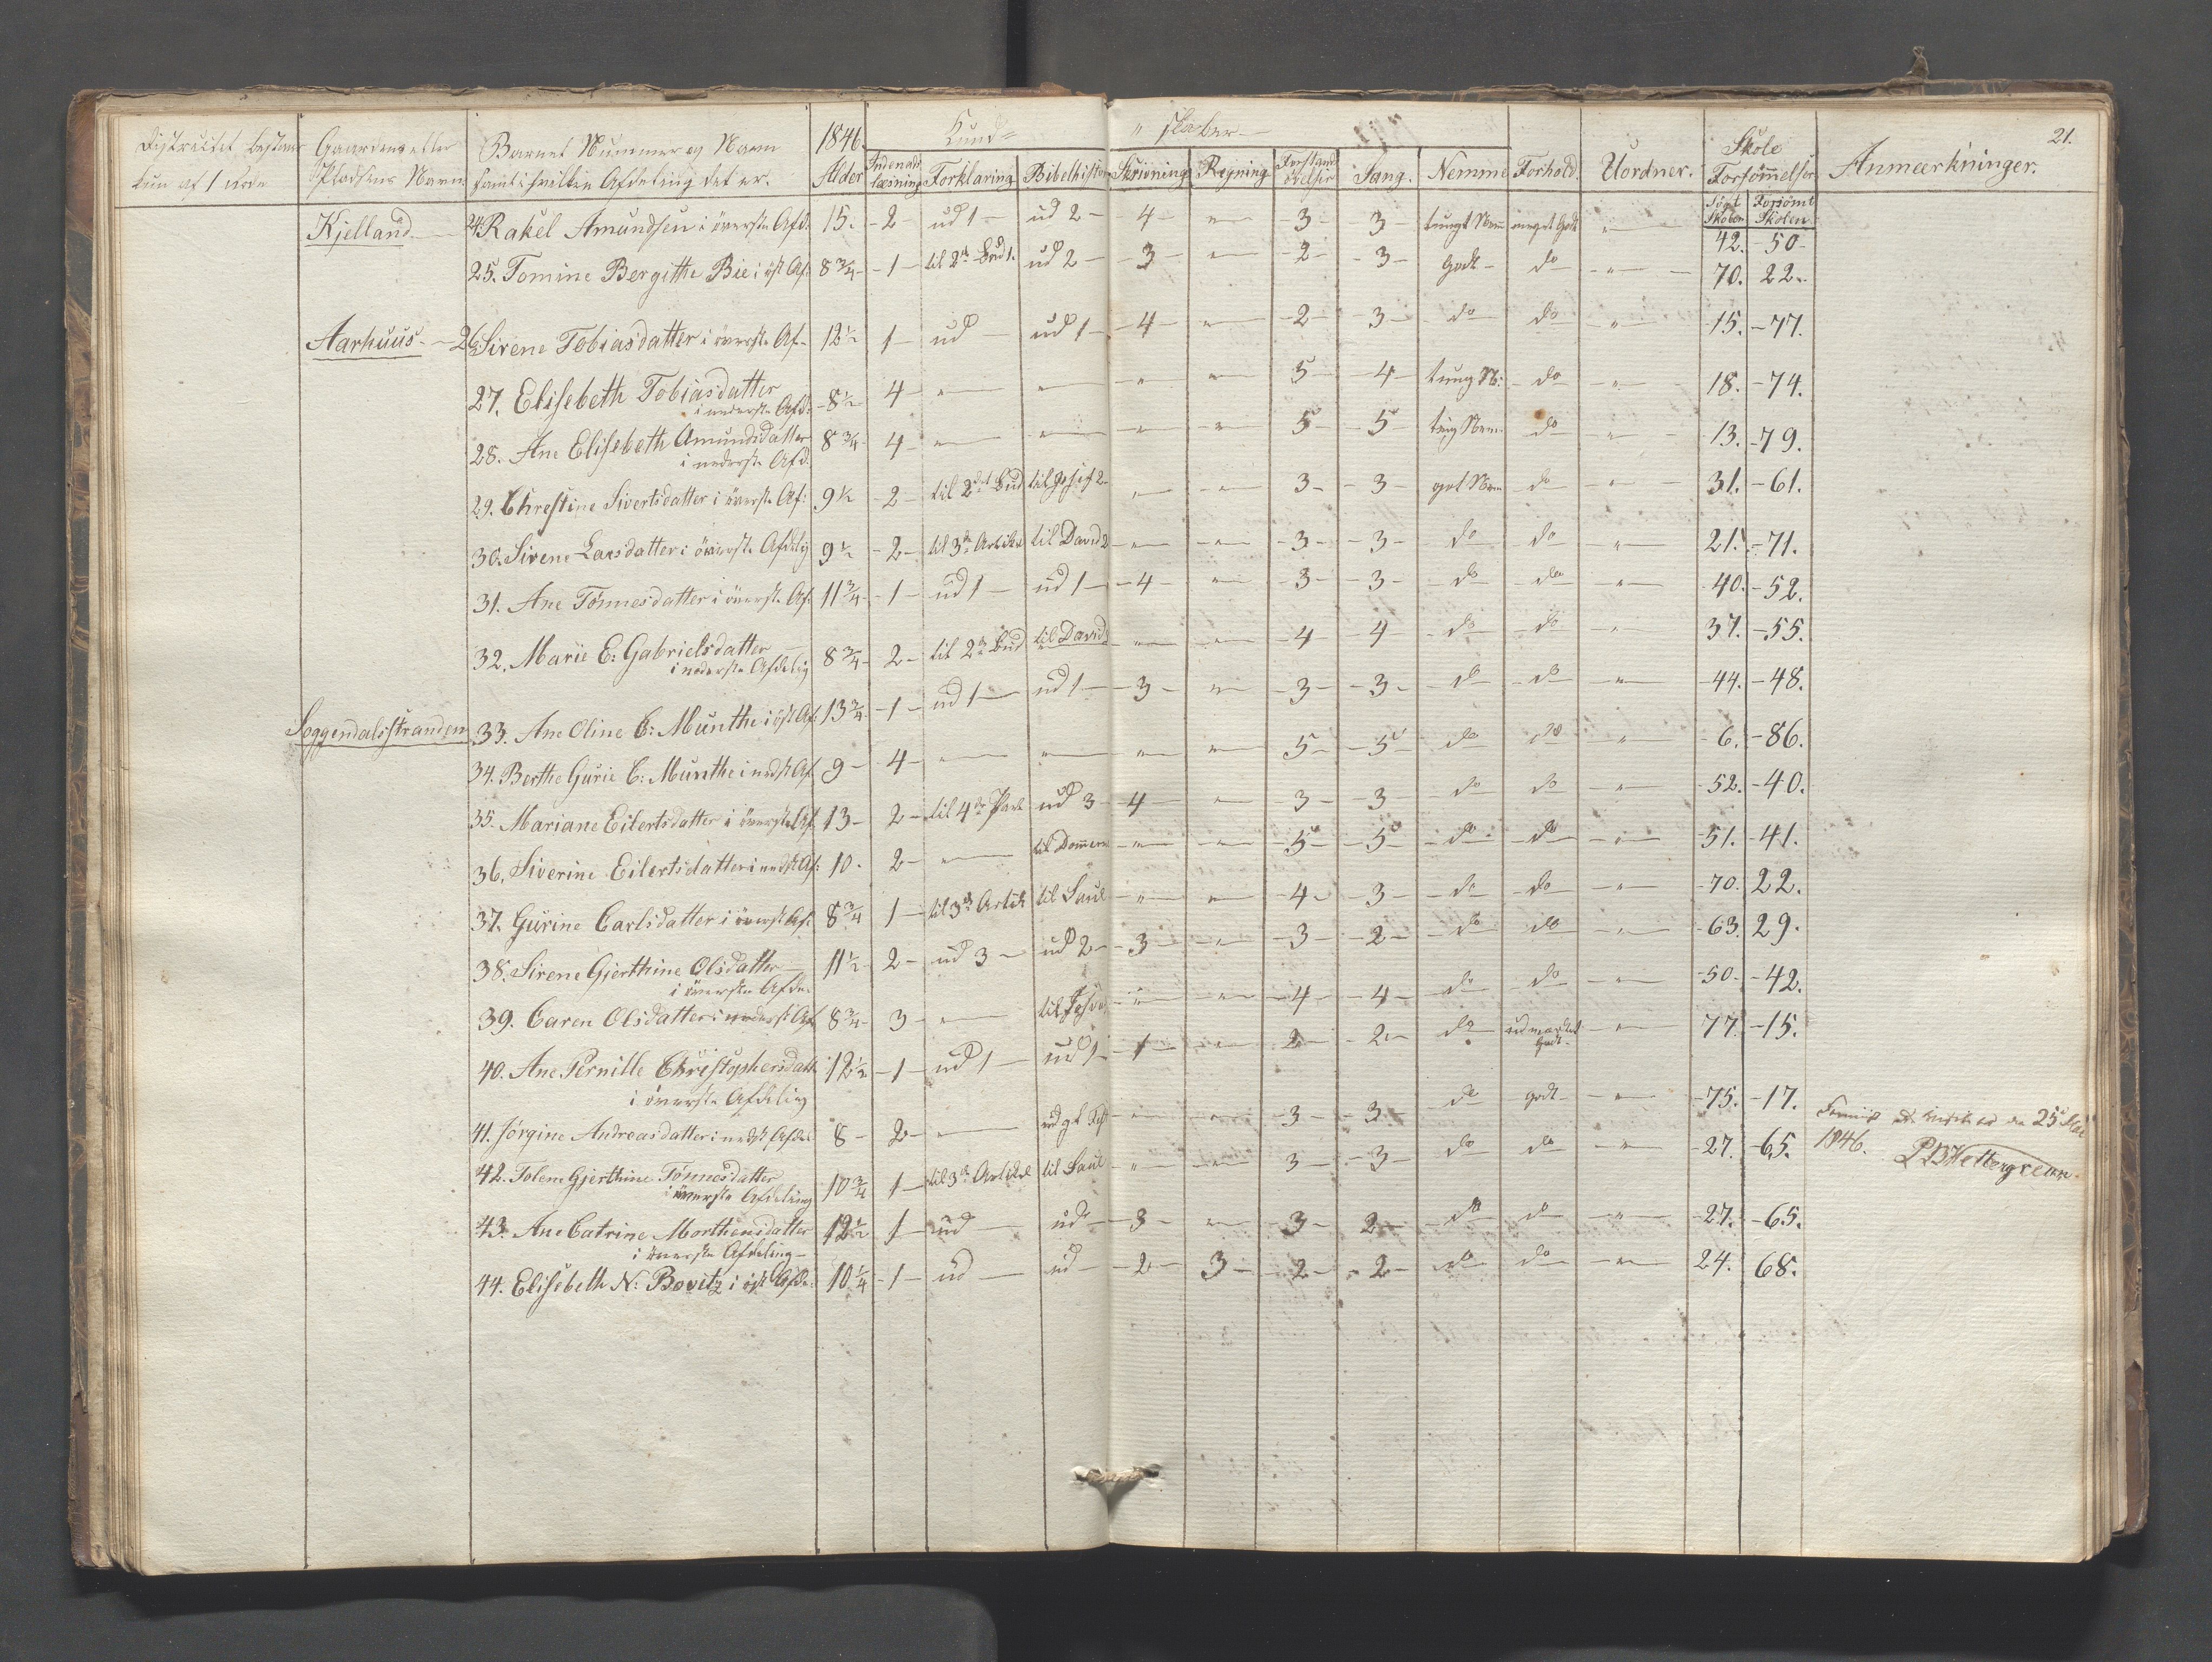 21.
Districtet bestaar Gaardens eller Barnets Nummer og Navn 1846. Kund= "skaber Skole Anmeerkninger.
kun af 1 Rode Pladsens Navn. samt i hvilken Afdeling det er. Alder Indenads læsning Forklaring Bibelhistorie Skrivning Regning Forstands övelser Sang. Nemme Forhold. Uordner. Forsömmelser
Sögt Skolen Forsömt Skolen
Kjelland 24. Rakel Amundsen i överste Afd. 15. - 2 - ud 1 - ud 2 - 4 - " - 3 - 3 - tungt Nem meget Godt " 42. - 50 -
25. Tomine Bergithe Bie i öst Af. 8 3/4 - 1 - til 2det Bud 1. ud 2 - 3 - " - 2 - 3 - Godt - do - " - 70. 22.
Aarhuus. - 26. Sirene Tobiasdatter i överste Af. 12 1/2 1 - ud - ud 1 - 4 - " - 2 - 3 - do do - " - 15. - 77.
27. Elisebeth Tobiasdatter
i nederste Afd. - 8 1/2 4 - " - " - " - " 5 - 4 - tung N: - do - " - 18. - 74.
28. Ane Elisebeth Amundsdatter
i nederste Afd. 8 3/4 4 - " - " - " - " - 5 - 5 - tung Nem do - " - 13. - 79.
29. Christine Sivertsdatter i överste Af: 9 1/2 - 2 - til 2det Bud til Josef 2 - " - " - 3 - 3 - got Nem do - " - 31. - 61.
30. Sirene Larsdatter i överste Afdelig 9 1/2 - 2 - til 3de Artikel til David 2 - " - " - 3 - 3 - do do - " 21. - 71.
31. Ane Tönnesdatter i överste Af. 11 3/4 - 1 - ud 1 - ud 1 - 4 - " - 3 - 3 - do do - " 40. - 52.
32. Marie E: Gabrielsdatter
i nederste Afdelig 8 3/4 - 2 - til 2det Bud til David 2 - " - " - 4 - 4 - do do - " 37. - 55.
Soggendalsstranden 33. Ane Oline C: Munthe i öst Af. 13 3/4 - 1 - ud 1 - ud 1 - 3 - " - 3 - 3 - do do - " 44. - 48.
34. Berthe Gurie C: Munthe i nedst Af. 9 - 4 - " - " - " - " 5 - 5 - do do - " - 6. - 86.
35. Mariane Eilertsdatter i överste Af. 13 - 2 - til 4de Part ud 3 - 4 - " - 3 - 3 - do do - " - 52. - 40.
36. Siverine Eilertsdatter i nedst Af: 10 - 2 - " til Domern - " - " - 5 - 5 - do do - " - 51. - 41.
37. Gurine Carlsdatter i överst Af. 8 3/4 1 - til 3de Artik til Saul - " - " - 4 - 3 - do do - " - 70. 22.
38. Sirene Gjerthine Olsdatter
i överste Afde. 11 1/2 - 2 - ud 3 - ud 2 - 3 - " - 3 - 2 - do do - " - 63. 29.
39. Caren Olsdatter i nederst Af. 8 3/4 - 3 - " til Josva - " - " - 4 - 4 - do do - " - 50. - 42.
40. Ane Pernille Christophersdatt
i överste Afdeling 12 1/2 - 1 - ud 1 - ud 1 - 1 - " - 2 - 2 - do udmærket Godt. - " 77. - 15.
41. Jörgine Andreasdatter i nedst Afdel. 8 - 2 - " - " - " - 3 - 3 - do godt - " - 75. - 17.
den 25de Mai
1846. P.B Wettergreen.
42. Tolene Gjerthine Tönnesdatter
i överste Afdeling 10 3/4 1 - til 3de Artikel til Saul - " - " - 3 - 3 - do do - " - 27. - 65.
43. Ane Catrine Morthensdatter
i överste Afdeling - 12 1/2 1 - ud - ud - 3 - " - 3 - 2 - do do - " - 27. - 65.
44. Elisebeth N: Bovitz i öst Afde. 10 1/4 - 1 - ud - ud - 2 - 3 - 2 - 2 - do do - " - 24. 68.